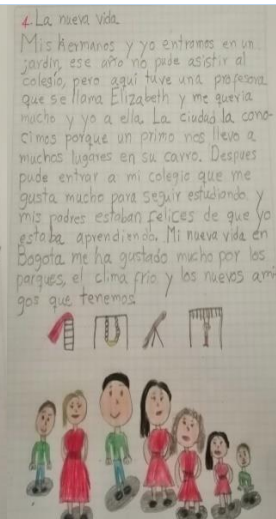 4. La nueva vida
Mis hermanos y yo entramos en un
jardín, ese año no pude asistir al
colegio, pero aquí tuve una profesora
que se llama Elizabeth y me quería
mucho y yo a ella. La ciudad la cono-
cimos porque un primo nos llevo a
muchos lugares en su carro. Despues
pude entrar a mi colegio que me
gusta mucho para seguir estudiando y
mis padres estaban felices de que yo
estaba aprendiendo. Mi nueva vida en
Bogota me ha gustado mucho por los
parques, el clima frio y los nuevos ami
gos que tenemos.